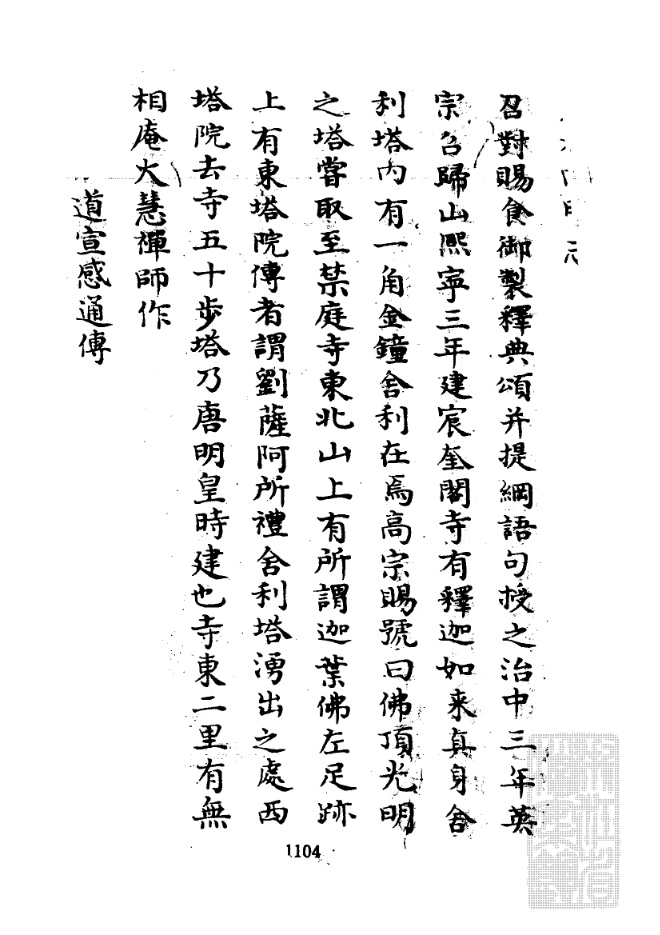 召對賜食御製釋典頌并提綱語句授之治中三年英
宗召歸山熙寧三年建宸奎閣寺有釋迦如来真身舍
利塔内有一角金鐘舍利在焉高宗賜號曰佛頂光明
之塔嘗取至禁庭寺東北山上有所謂迦葉佛左足跡
上有東塔院傳者謂劉薩阿所禮舍利塔湧出之處西
塔院去寺五十步塔乃唐明皇時建也寺東二里有無
相庵大慧禪師作
道宣感通傳
1104